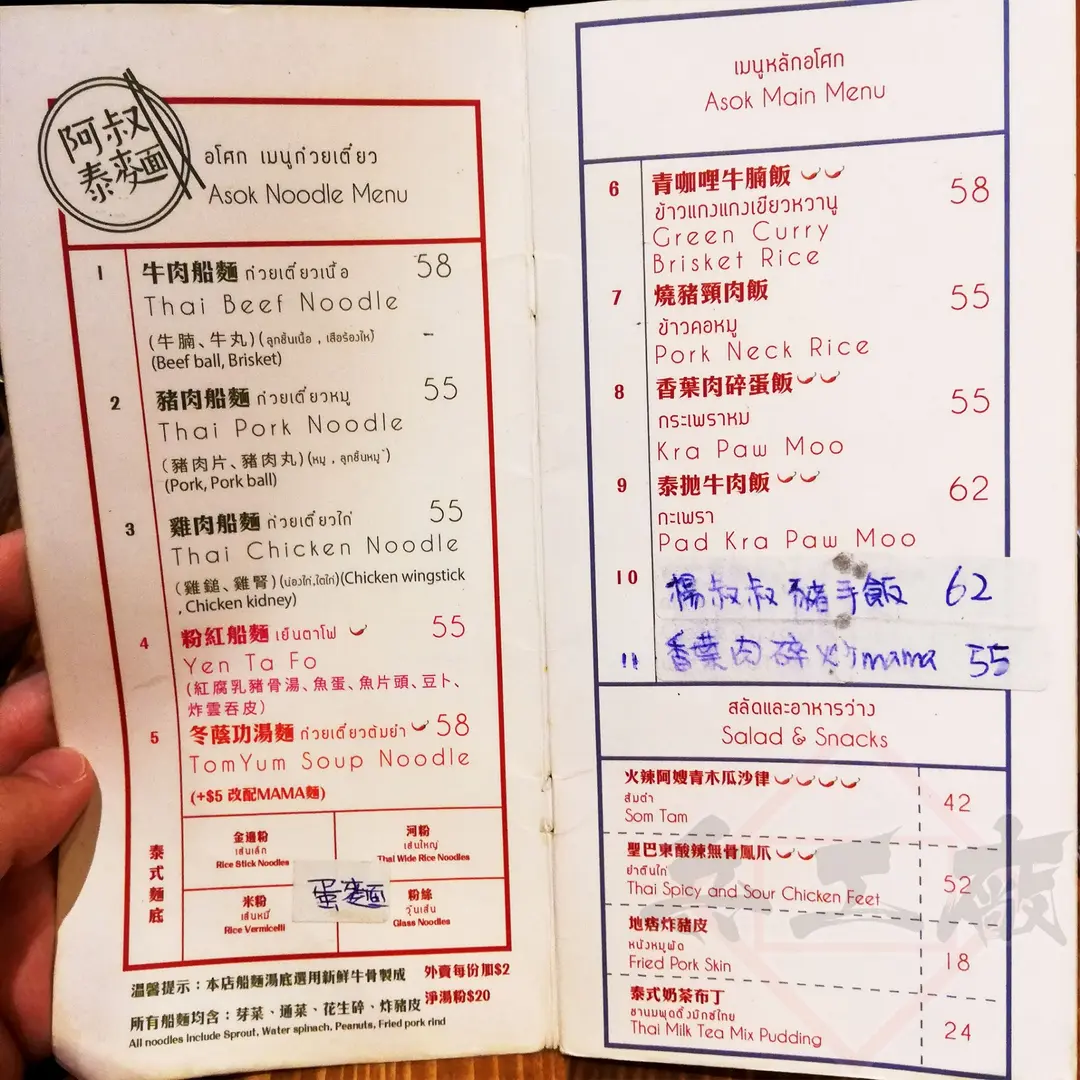 阿叔
泰麵
อโศก เมนูก๋วยเตี๋ยว
Asok Noodle Menu
1 牛肉船麵 ก๋วยเตี๋ยวเนื้อ 58
Thai Beef Noodle
(牛腩、牛丸) (ลูกชิ้นเนื้อ , เสือร้องไห้)
(Beef ball, Brisket)
2 豬肉船麵 ก๋วยเตี๋ยวหมู 55
Thai Pork Noodle
(豬肉片、豬肉丸) (หมู , ลูกชิ้นหมู)
(Pork, Pork ball)
3 雞肉船麵 ก๋วยเตี๋ยวไก่ 55
Thai Chicken Noodle
(雞鎚、雞腎) (น่องไก่,ไตไก่)(Chicken wingstick
, Chicken kidney)
4 粉紅船麵 เย็นตาโฟ 55
Yen Ta Fo
(紅腐乳豬骨湯、魚蛋、魚片頭、豆卜、
炸雲吞皮)
5 冬蔭功湯麵 ก๋วยเตี๋ยวต้มยำ 58
TomYum Soup Noodle
(+$5 改配MAMA麵)
泰式麵底
金邊粉
เส้นเล็ก
Rice Stick Noodles
河粉
เส้นใหญ่
Thai Wide Rice Noodles
米粉
เส้นหมี่
Rice Vermicelli
蛋麵
粉絲
วุ้นเส้น
Glass Noodles
溫馨提示：本店船麵湯底選用新鮮牛骨製成
外賣每份加$2
所有船麵均含：芽菜、通菜、花生碎、炸豬皮
淨湯粉$20
All noodles include Sprout, Water spinach, Peanuts, Fried pork rind
เมนูหลักอโศก
Asok Main Menu
6 青咖哩牛腩飯 58
ข้าวแกงแกงเขียวหวานู
Green Curry
Brisket Rice
7 燒豬頸肉飯 55
ข้าวคอหมู
Pork Neck Rice
8 香葉肉碎蛋飯 55
กระเพราหม
Kra Paw Moo
9 泰拋牛肉飯 62
กะเพรา
Pad Kra Paw Moo
10 楊叔叔豬手飯 62
11 香葉肉碎炒mama 55
สลัดและอาหารว่าง
Salad & Snacks
火辣阿嫂青木瓜沙律 42
ส้มตำ
Som Tam
聖巴東酸辣無骨鳳爪 52
ยำตีนไก่
Thai Spicy and Sour Chicken Feet
地痞炸豬皮 18
หนังหมูพัด
Fried Pork Skin
泰式奶茶布丁 24
ชานมพุดดิ้งมิกซ์ไทย
Thai Milk Tea Mix Pudding